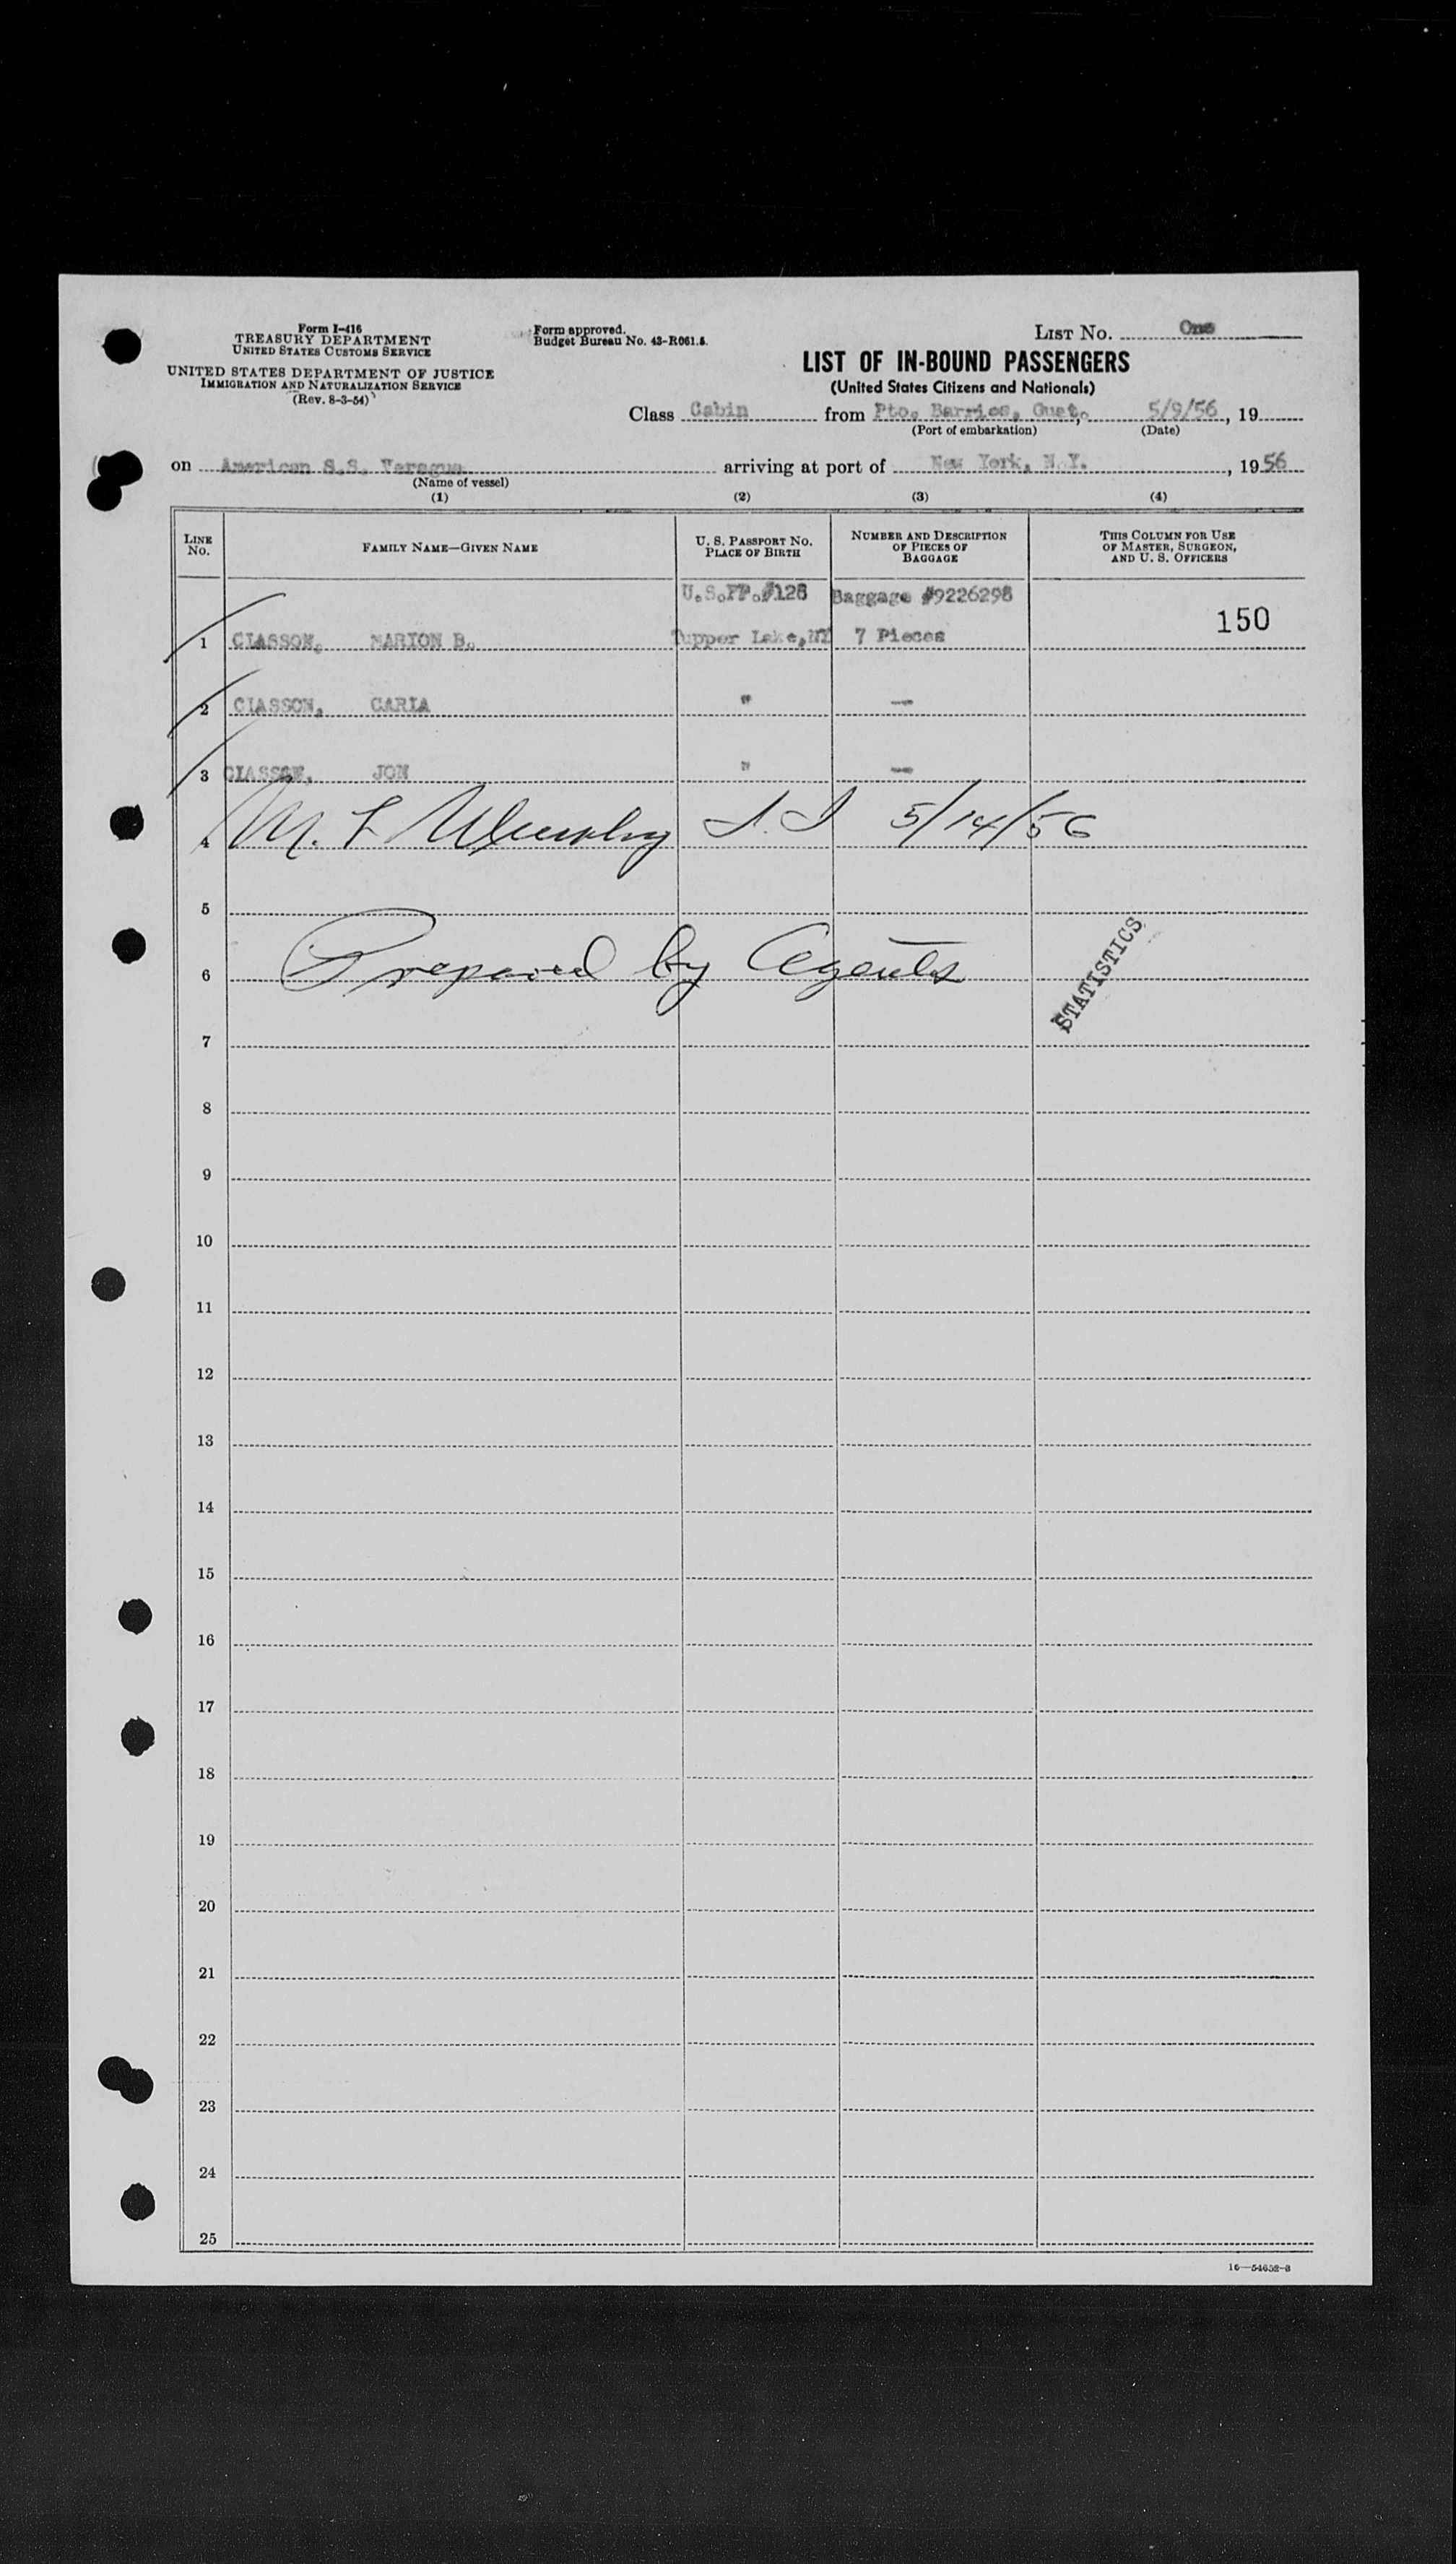 Form I-416
TREASURY DEPARTMENT
UNITED STATES CUSTOMS SERVICE
UNITED STATES DEPARTMENT OF JUSTICE
IMMIGRATION AND NATURALIZATION SERVICE
(Rev. 8-3-54)
Form approved.
Budget Bureau No. 43-R061.5.
LIST NO. One
LIST OF IN-BOUND PASSENGERS
(United States Citizens and Nationals)
Class Cabin from Pto. Barrios, Guat., 5/9/56, 19
(Port of embarkation) (Date)
on American S.S. Veragua arriving at port of New York, N.Y., 1956
(Name of vessel)
(1) (2) (3) (4)
LINE NO. FAMILY NAME—GIVEN NAME U. S. PASSPORT NO. PLACE OF BIRTH NUMBER AND DESCRIPTION OF PIECES OF BAGGAGE THIS COLUMN FOR USE OF MASTER, SURGEON, AND U. S. OFFICERS
U.S.PP.#128 Baggage #9226298
1 CLASSON, MARION B. Tupper Lake,NY 7 Pieces 150
2 CLASSON, CARLA " —
3 CLASSON, JON " —
4 M. F Murphy I.I 5/14/56
5
6 Prepared by Agents
STATISTICS
7
8
9
10
11
12
13
14
15
16
17
18
19
20
21
22
23
24
25
16—54652-3